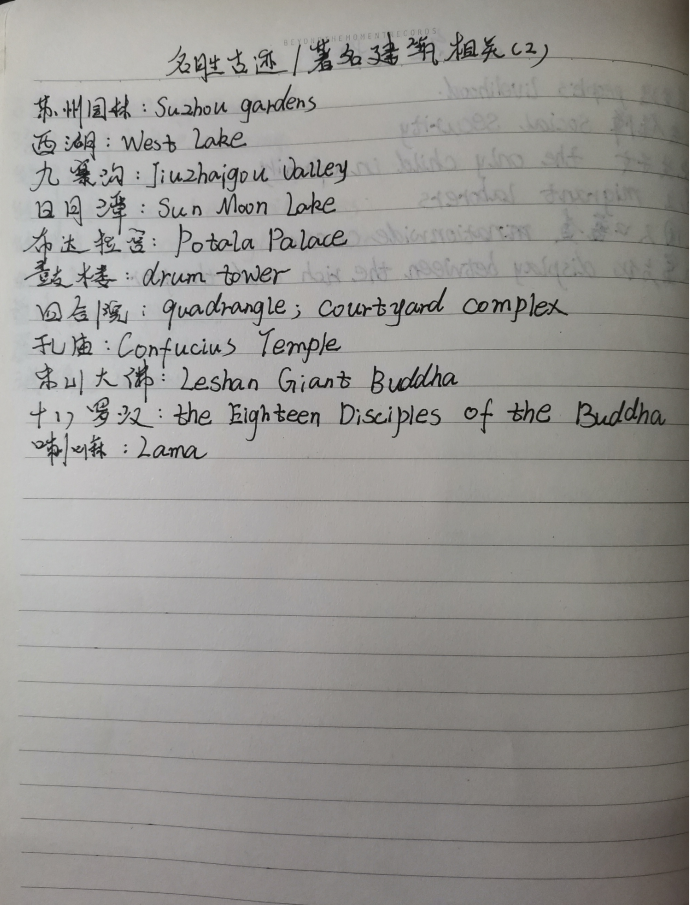 BEYOND THE MOMENT RECORDS
名胜古迹/著名建筑相关(2)
苏州园林:Suzhou gardens
西湖:West Lake
九寨沟:Jiuzhaigou Valley
日月潭:Sun Moon Lake
布达拉宫:Potala Palace
鼓楼:drum tower
四合院:quadrangle; courtyard complex
孔庙:Confucius Temple
乐山大佛:Leshan Giant Buddha
十八罗汉:the Eighteen Disciples of the Buddha
喇嘛:Lama